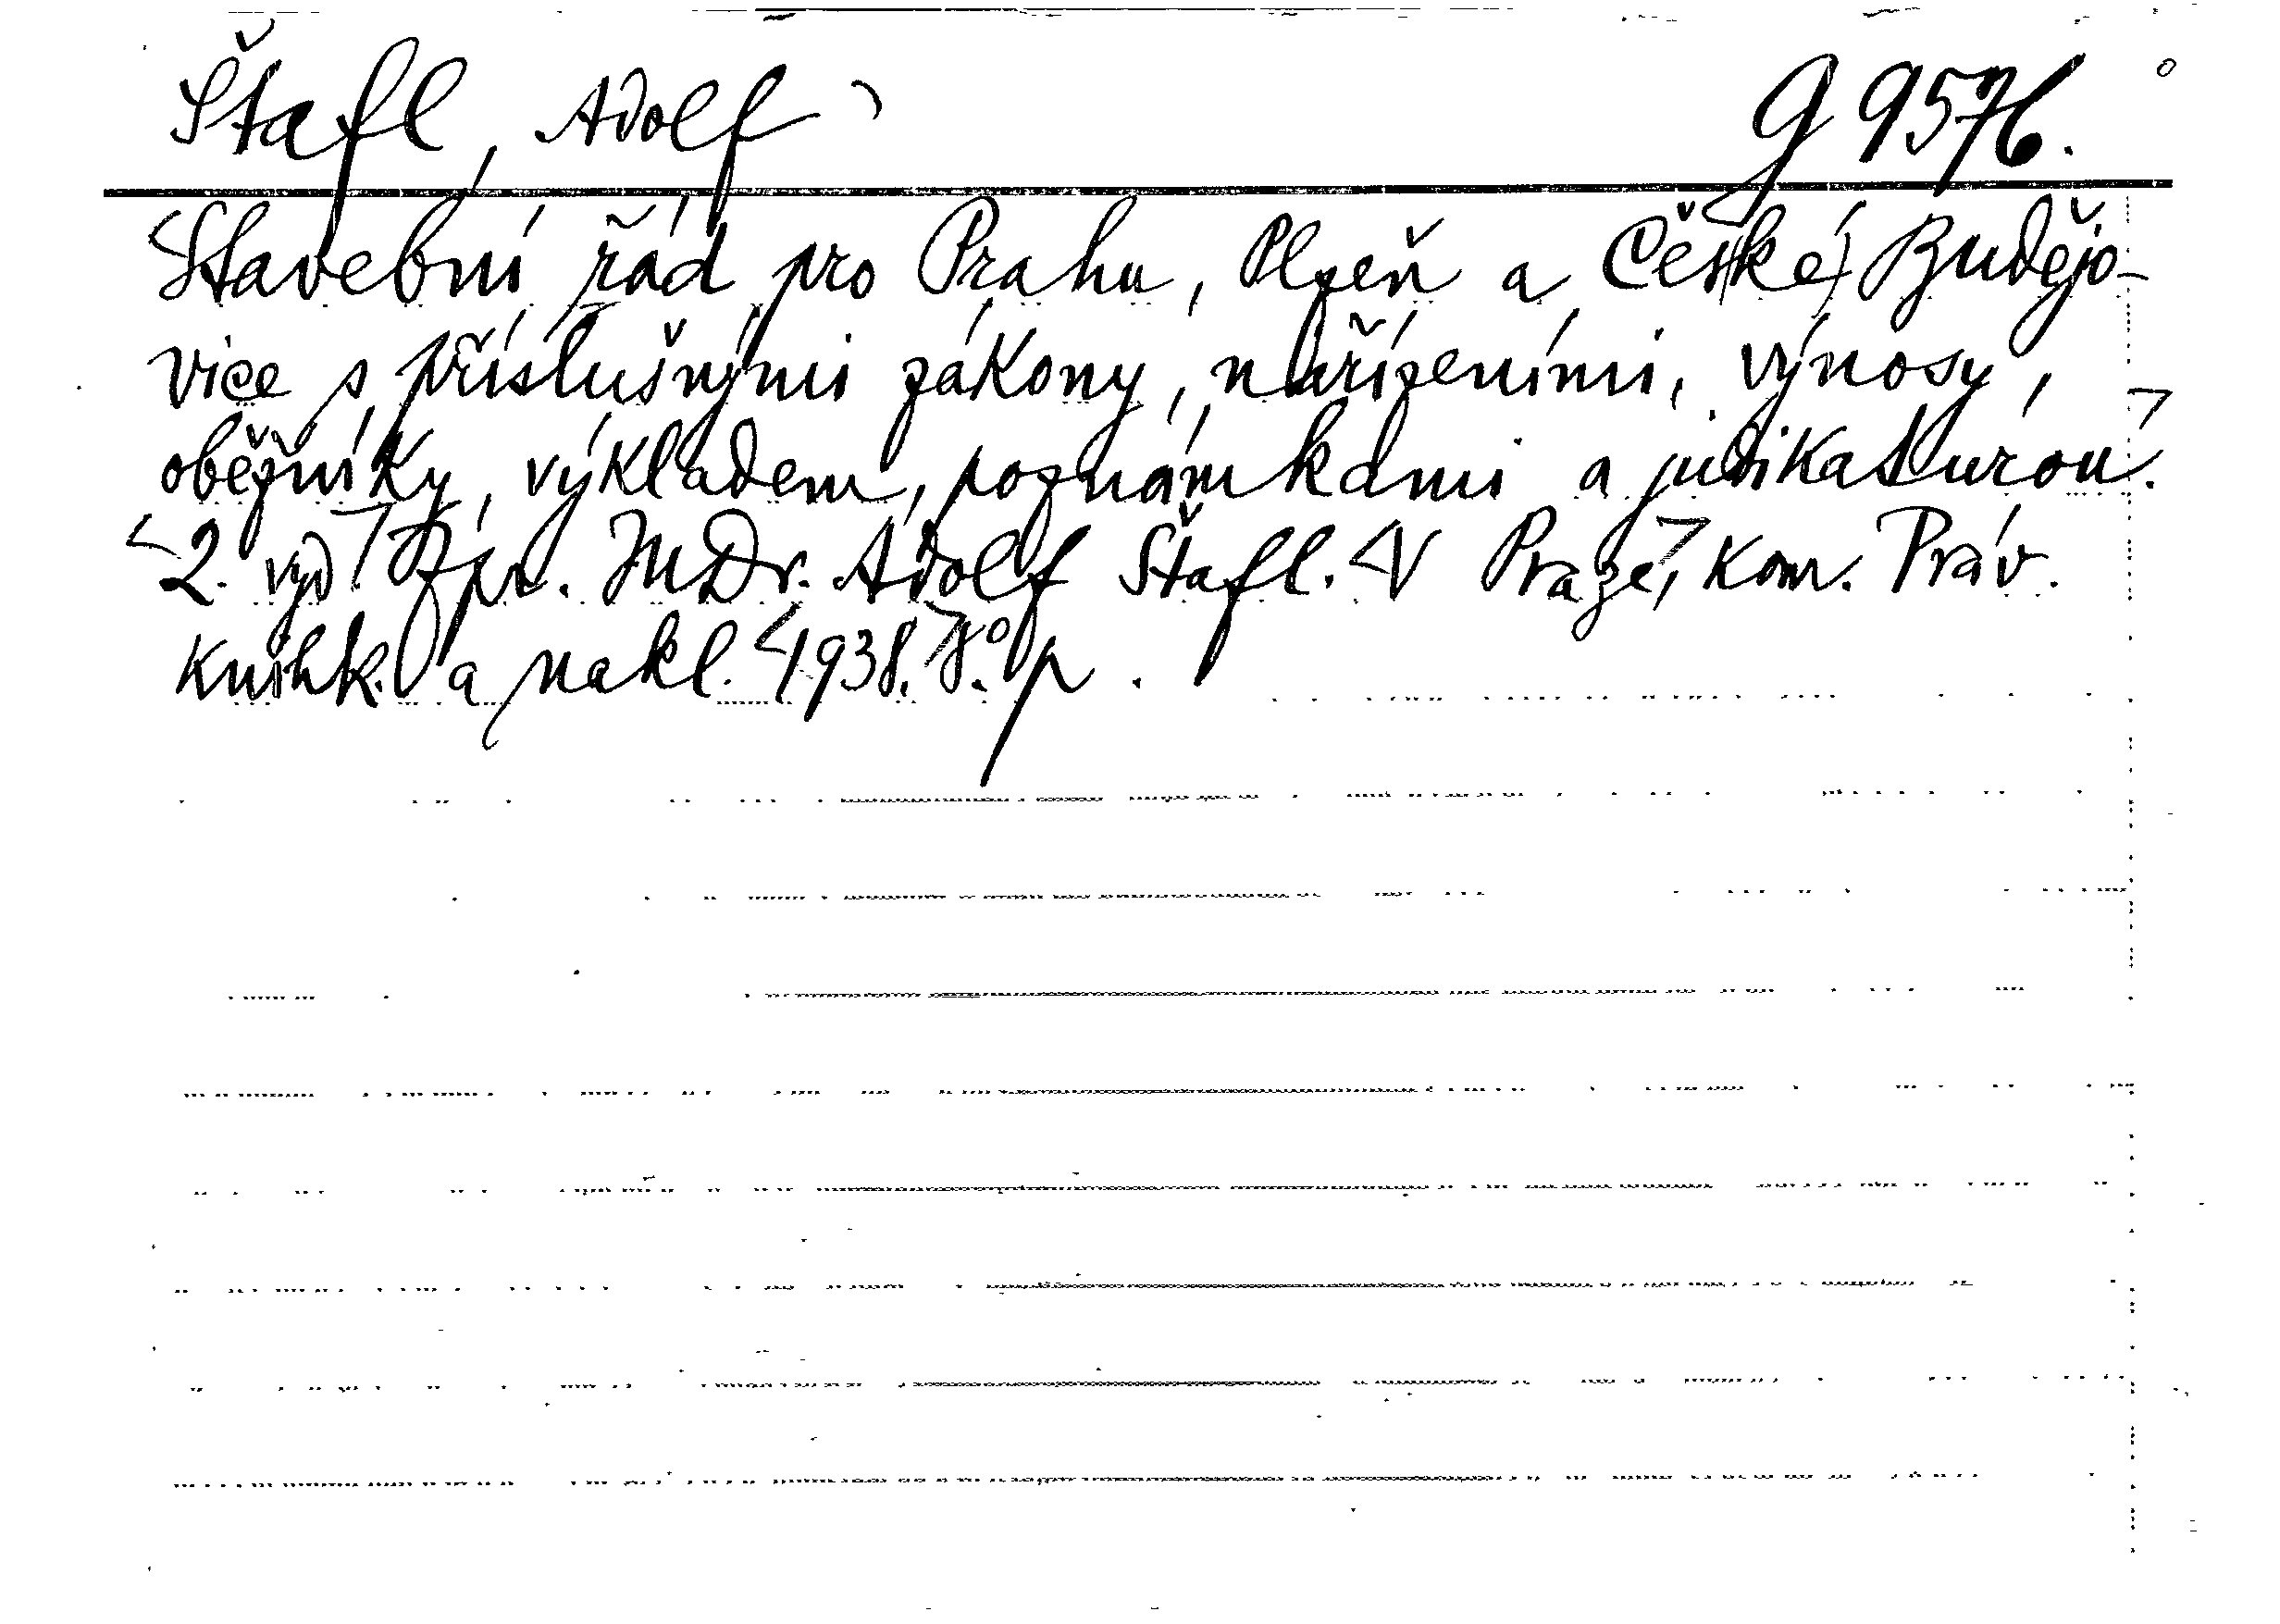 Štafl, Adolf
G 9576.
Stavební řád pro Prahu, Plzeň a České Budějo-
vice s příslušnými zákony, nařízeními, výnosy,
oběžníky, výkladem, poznámkami a judikaturou.
2. vyd. Zpr. JUDr. Adolf Štafl. V Praze, Kom. Práv.
knihk. a nakl. 1938. 8° p.